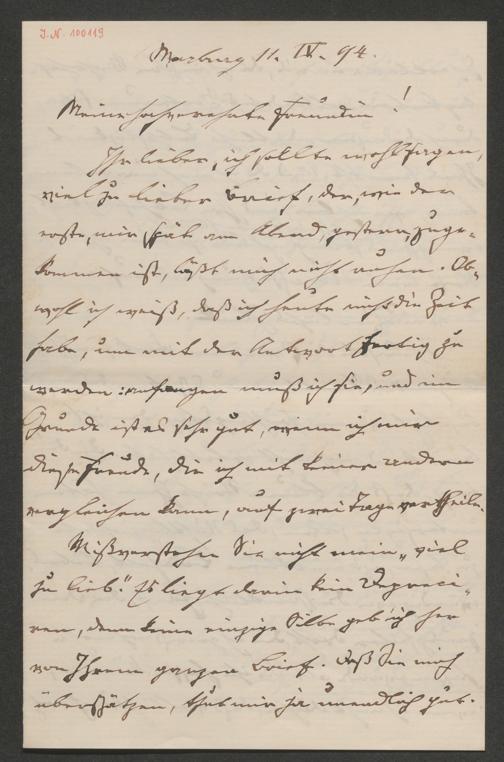 J. N. 100119
Marburg 11. IV. 94.
Meine hochverehrte Freundin!
Ihr lieber, ich sollte wohl sagen,
viel zu lieber Brief, der, wie der
erste, mir spät am Abend, gestern, zuge-
kommen ist, läßt mich nicht ruhen. Ob-
wohl ich weiß, daß ich heute nicht die Zeit
habe, um mit der Antwort fertig zu
werden: anfangen muß ich sie, und im
Grunde ist es sehr gut, wenn ich mir
diese Freude, die ich mit keiner andern
vergleichen kann, auf zwei Tage vertheile.
Mißverstehen Sie nicht mein „viel
zu lieb“. Es liegt darin kein Depreci-
ren, denn keine einzige Silbe geb ich her
von Ihrem ganzen Brief. Daß Sie mich
überschätzen, thut mir ja unendlich gut.